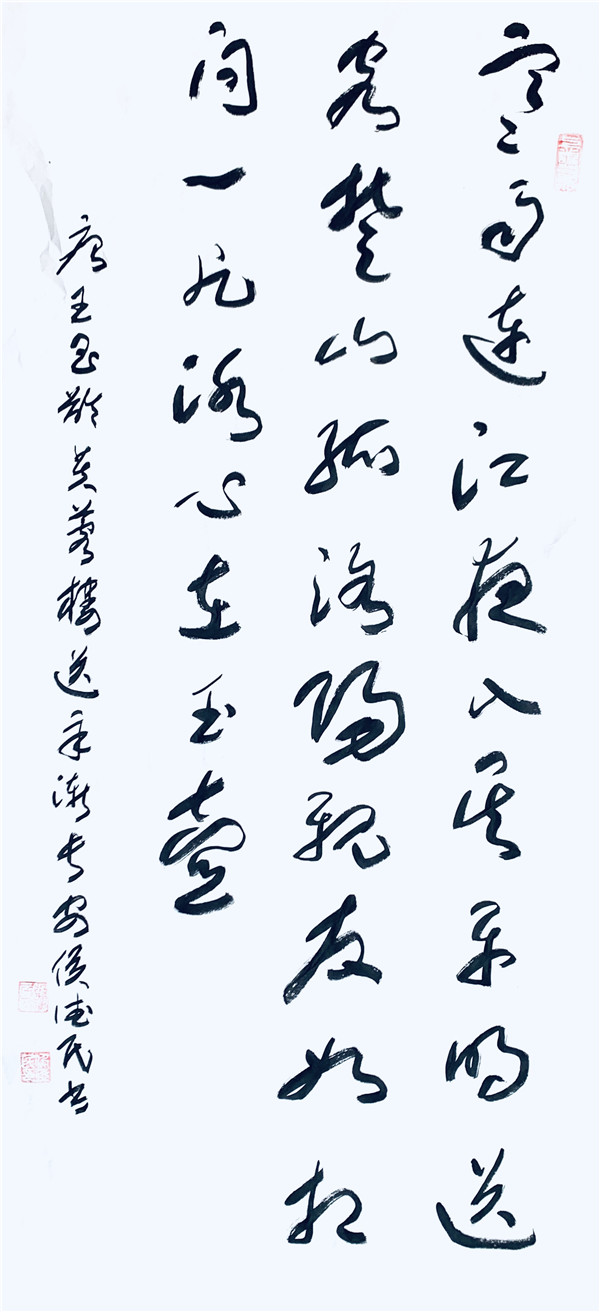 寒雨连江夜入吴平明送
客楚山孤洛阳亲友如相
问一片冰心在玉壶
唐王昌龄芙蓉楼送辛渐长安侯德民书